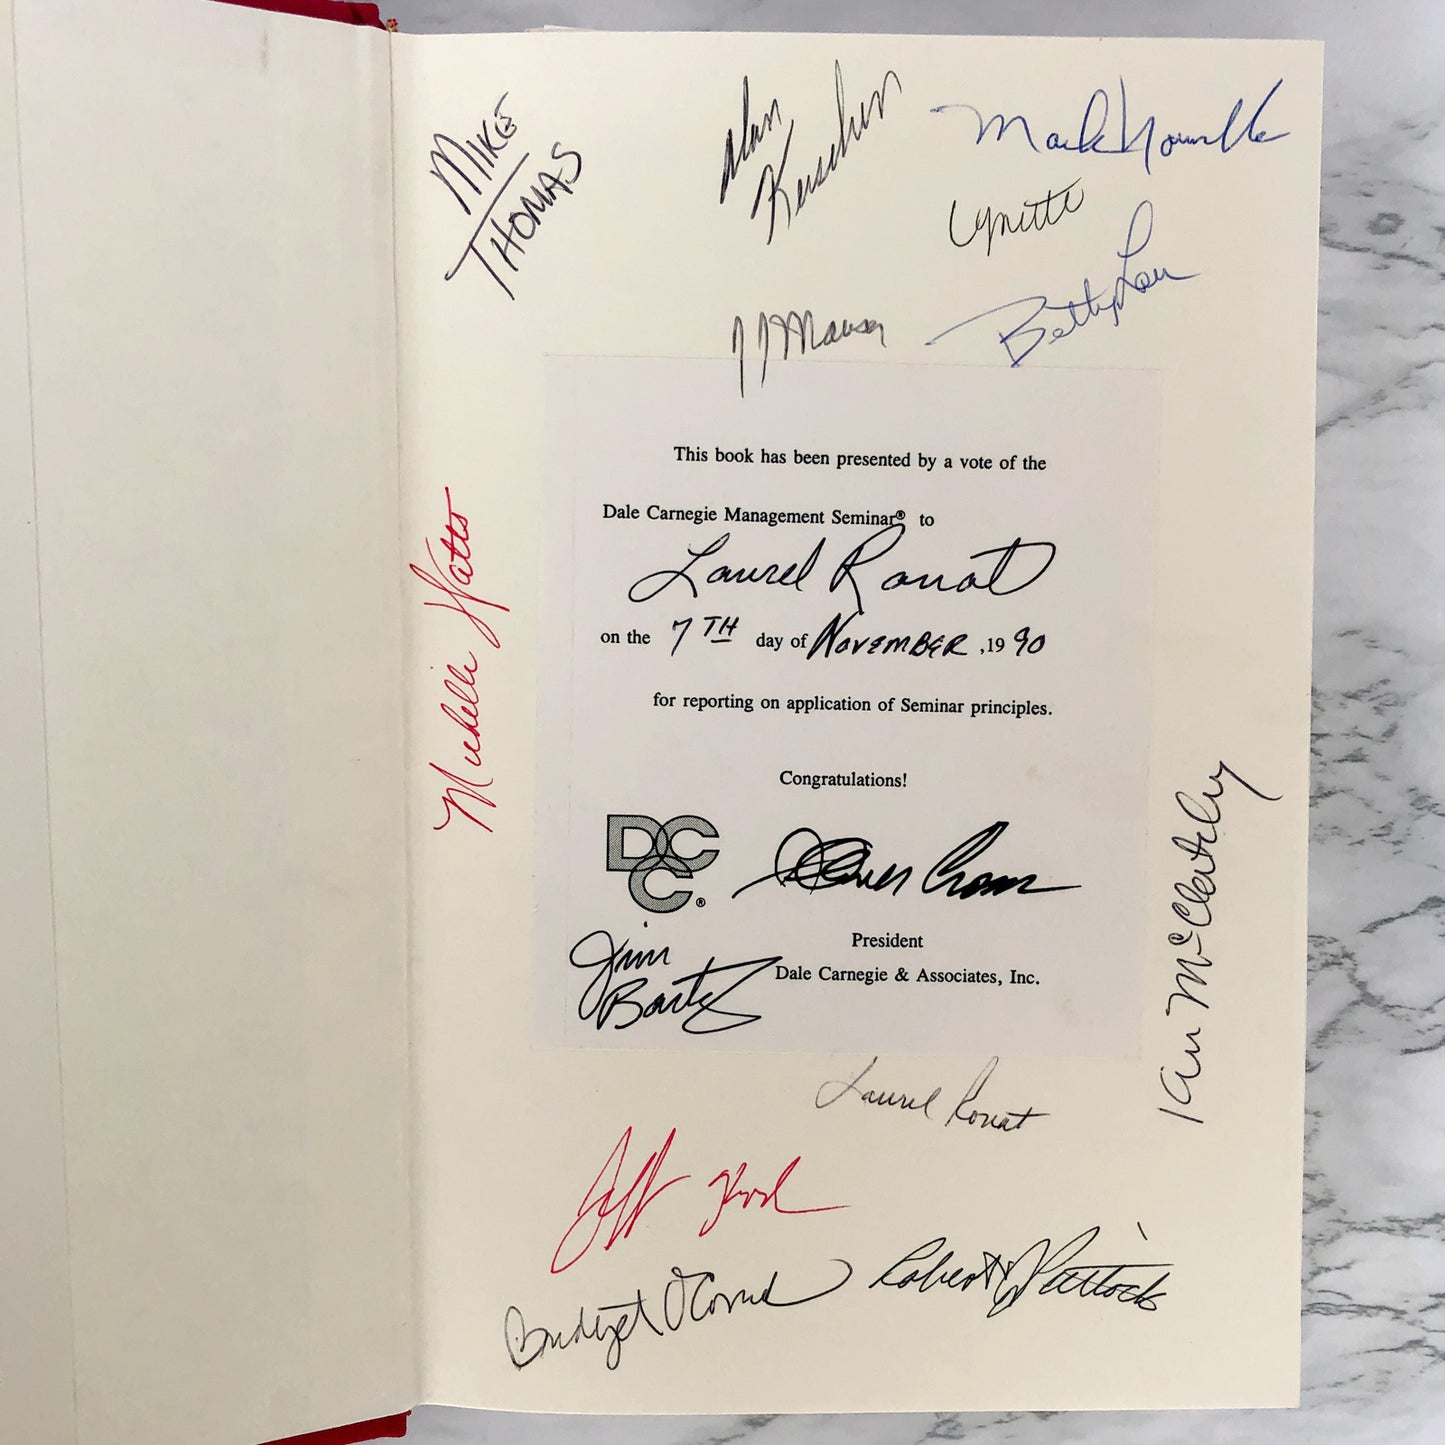 MIKE
THOMAS
Alan
Kerschen
Mark
Lynette
Betty Lou
JJ Mauser
This book has been presented by a vote of the
Dale Carnegie Management Seminar® to
Laurel Ronat
on the 7TH day of NOVEMBER, 1990
for reporting on application of Seminar principles.
Congratulations!
DCC
C®
Oliver Crom
President
Dale Carnegie & Associates, Inc.
Jim
Michelle Watts
Ian McCleatchy
Laurel Ronat
Jeff
Bridget O'Connel
Robert J Puttock